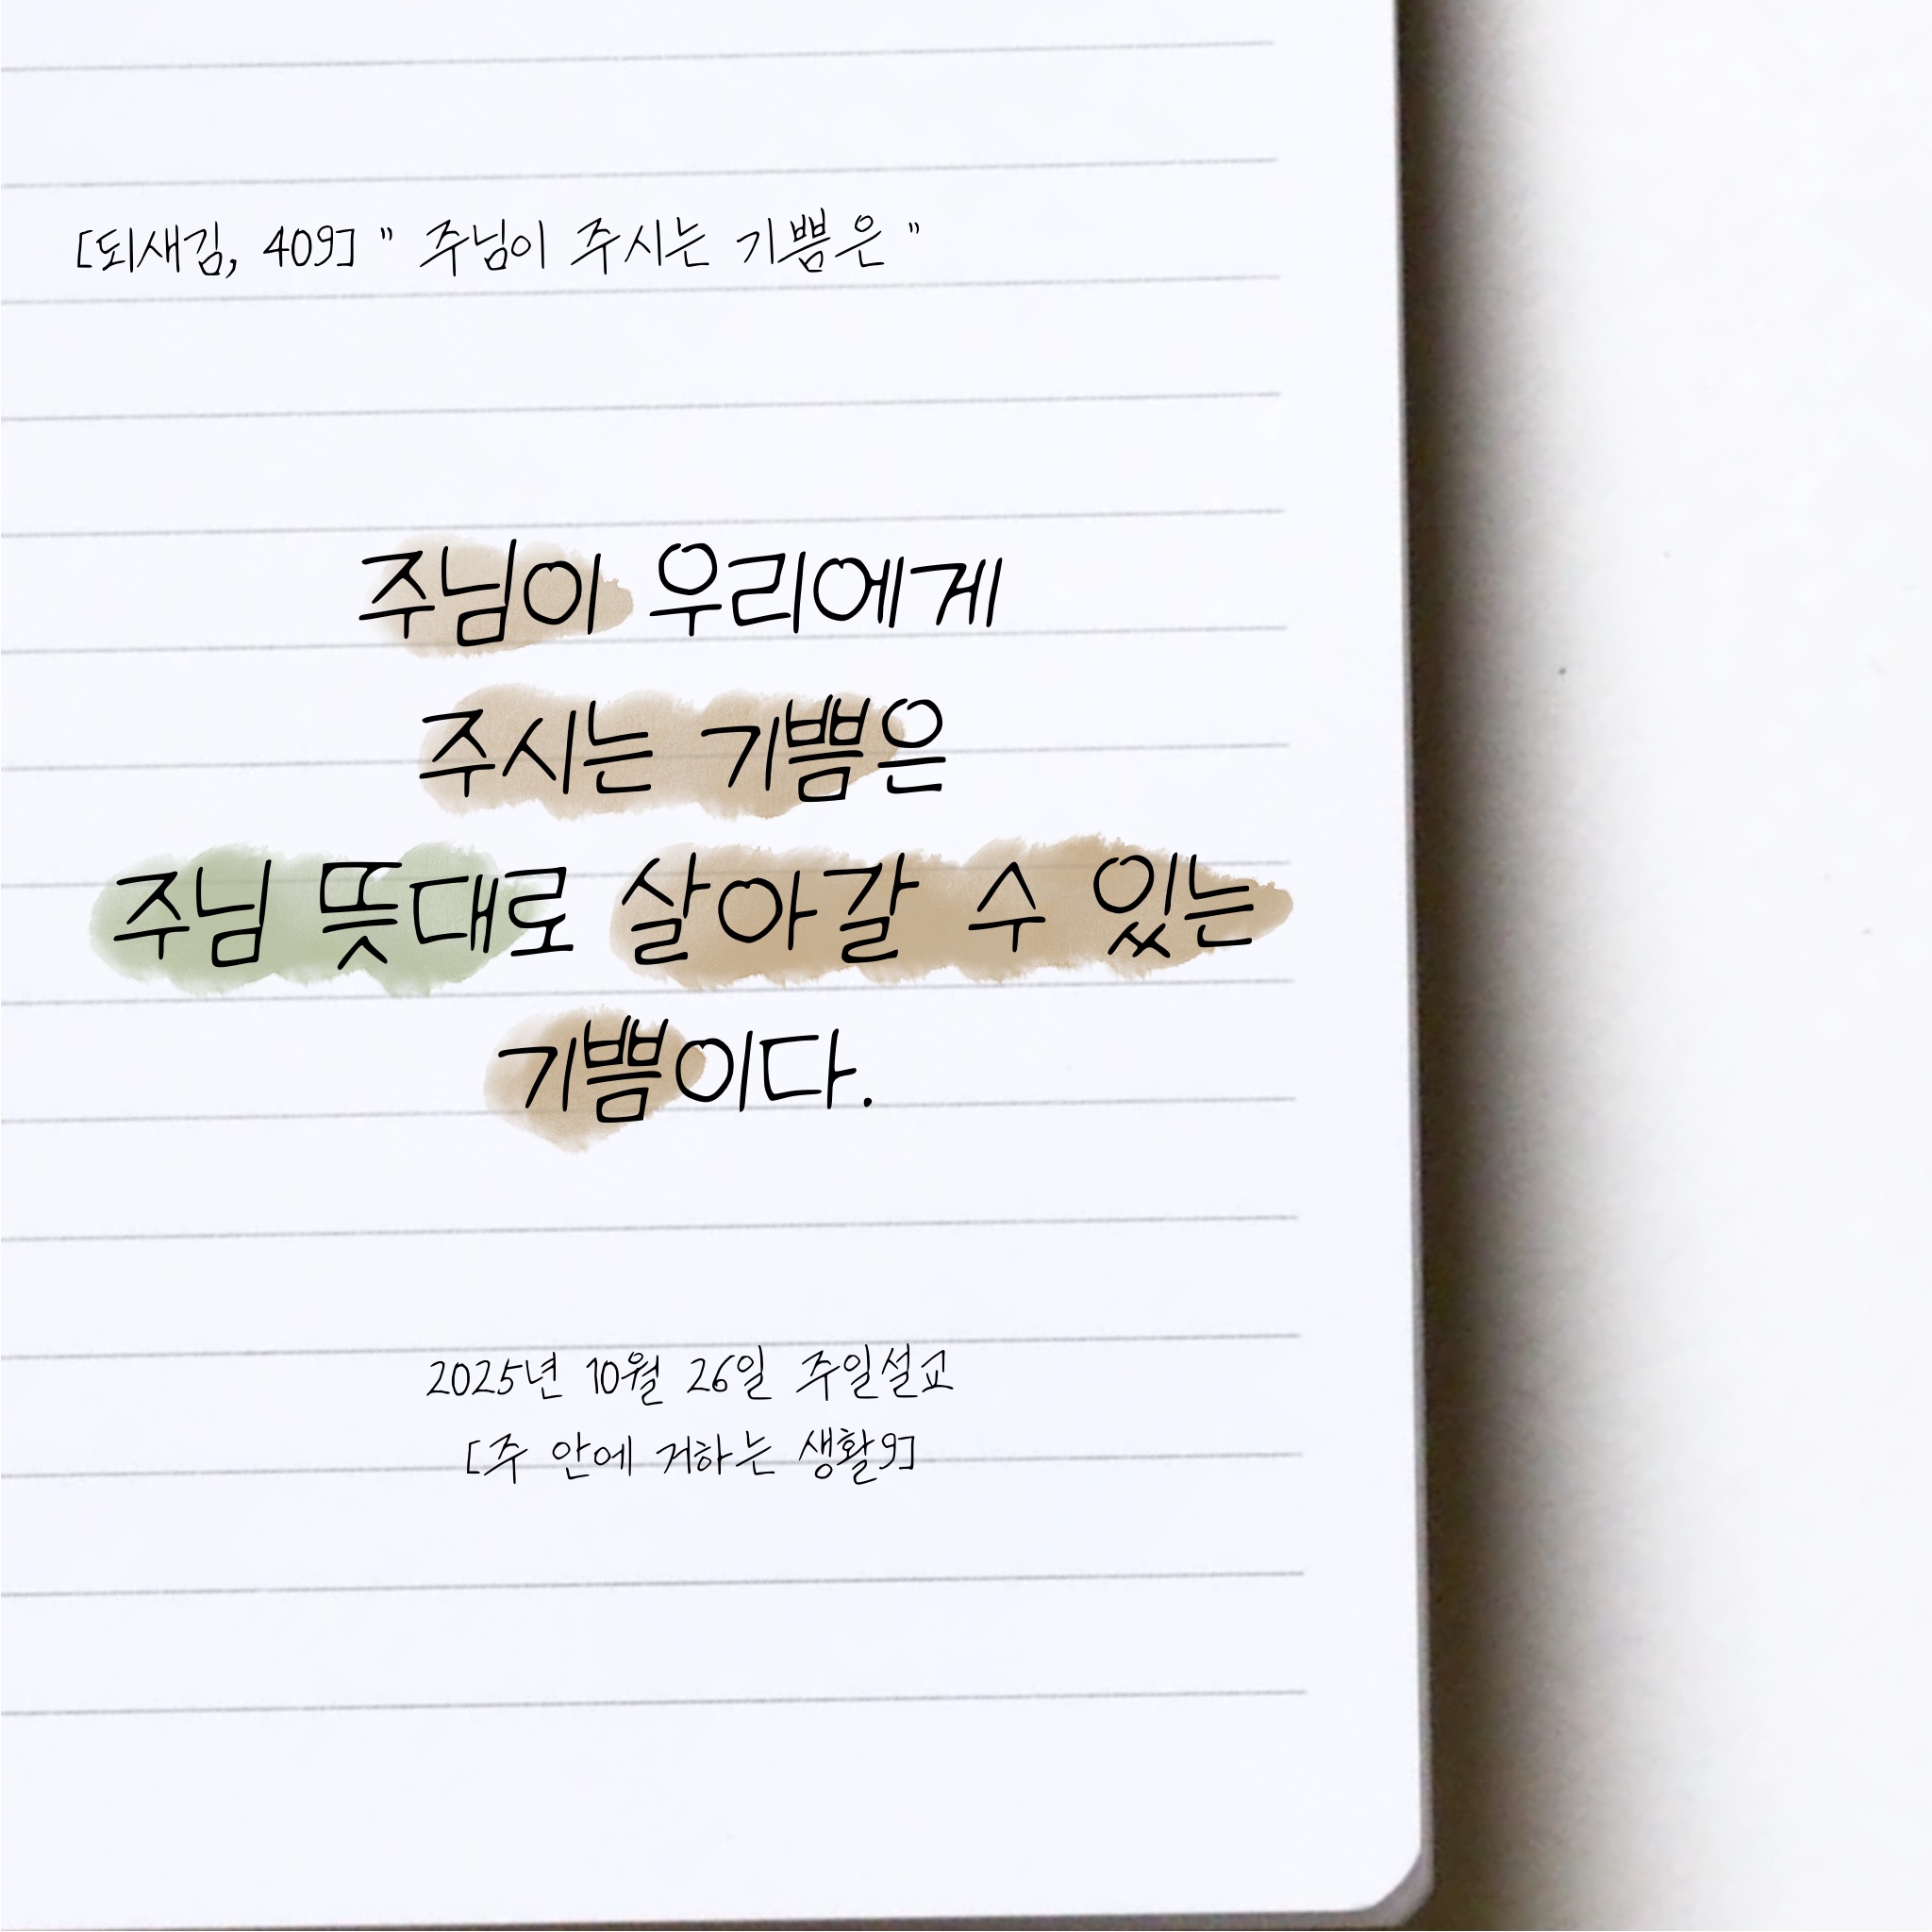 [되새김, 409] " 주님이 주시는 기쁨은 "
주님이 우리에게
주시는 기쁨은
주님 뜻대로 살아갈 수 있는
기쁨이다.
2025년 10월 26일 주일설교
[주 안에 거하는 생활9]